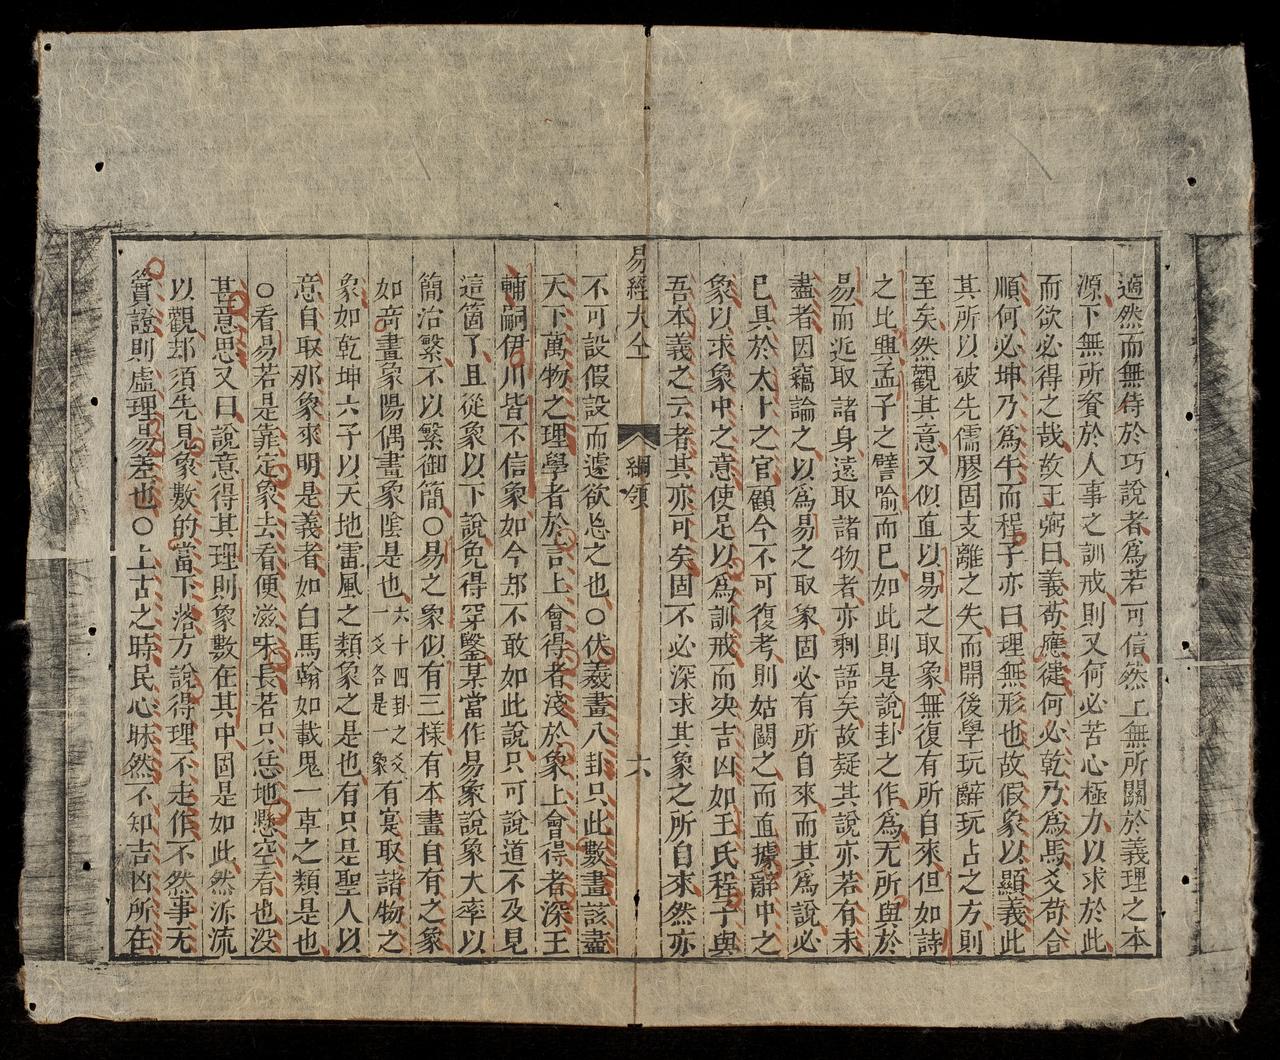 適然而無待於巧說者為若可信然上無所關於義理之本
源下無所資於人事之訓戒則又何必苦心極力以求於此
而欲必得之哉故王弼曰義苟應健何必乾乃為馬爻苟合
順何必坤乃為牛而程子亦曰理無形也故假象以顯義此
其所以破先儒膠固支離之失而開後學玩辭玩占之方則
至矣然觀其意又似直以易之取象無復有所自來但如詩
之比興孟子之譬喻而已如此則是說卦之作為无所與於
易而近取諸身遠取諸物者亦剩語矣故疑其說亦若有未
盡者因竊論之以為易之取象固必有所自來而其為說必
已具於太卜之官顧今不可復考則姑闕之而直據辭中之
象以求象中之意使足以為訓戒而决吉凶如王氏程子與
吾本義之云者其亦可矣固不必深求其象之所自來然亦
易經大全 綱領 六
不可設假設而遽欲忘之也○伏羲畫八卦只此數畫該盡
天下萬物之理學者於言上會得者淺於象上會得者深王
輔嗣伊川皆不信象如今却不敢如此說只可說道不及見
這箇了且從象以下說免得穿鑿某當作易象說象大率以
簡治繁不以繁御簡○易之象似有三樣有本畫自有之象
如奇畫象陽偶畫象陰是也六十四卦之爻一爻各是一象有寔取諸物之
象如乾坤六子以天地雷風之類象之是也有只是聖人以
意自取那象來明是義者如白馬翰如載鬼一車之類是也
○看易若是靠定象去看便滋味長若只恁地懸空看也沒
甚意思又曰說意得其理則象數在其中固是如此然泝流
以觀却須先見象數的當下落方說得理不走作不然事无
實證則虛理易差也○上古之時民心昧然不知吉凶所在